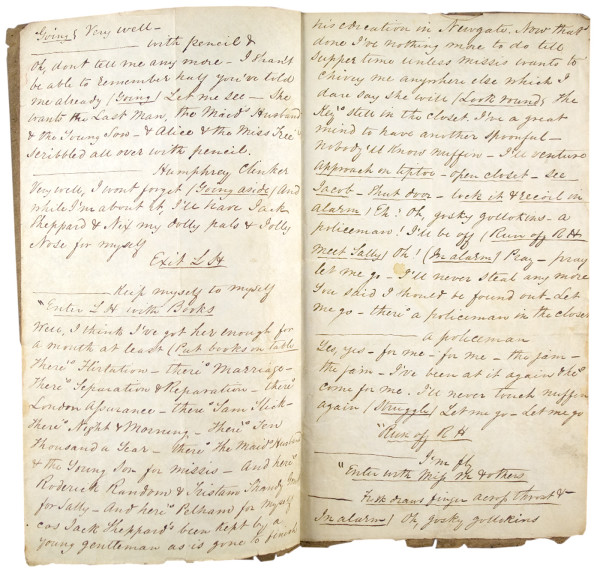 "Going) Very well –
______ with pencil &
Oh, dont tell me any more – I shant
be able to remember half you've told
me already (Going) Let me see – She
wants the Last Man, the Maid's Husband
& the Young Son – & Alice & the Miss Tree &
scribbled all over with pencil.
______ Humphrey Clinker
Very well, I wont forget (Going aside) And
while I'm about it, I'll have Jack
Sheppard & Nix my Dolly pals & Jolly
Nose for myself
Exit L H
______ Keep myself to myself
"Enter L H with Books
Well, I think I've got her enough for
a month at least (Put books on table
There's Flirtation – there's Marriage –
there's Separation & Reparation – there's
London Assurance – there Sam Slick –
there's Night & Morning – There's Ten
thousand a Year – there the Maid's Husband
& the Young Son for missis – And here's
Roderick Random & Tristam Shandy
for Sally – And here's Pelham for myself
cos Jack Sheppard's been kept by a
young gentleman as is gone to finish
his education in Newgate. Now that's
done I've nothing more to do till
supper time unless missis wants to
chivey me anywhere else which I
dare say she will (Look round) The
Key's still in the closet. I've a great
mind to have another spoonful –
nobody'll know nuffin – I'll venture
Approach on tiptoe – open closet – see
Jacob – Shut door – lock it & recoil in
alarm) Eh? Oh, gosky gollokins – a
policeman! I'll be off (Run off R H
meet Sally) Oh! (In alarm) Pray – pray
let me go – I'll never steal any more
You said I should be found out – Let
me go – there's a policeman in the closet
______ a policeman
Yes, yes – for me – for me – the jam –
the jam – I've been at it again & he's
come for me. I'll never touch nuffin
again (Struggle) Let me go – Let me go
"Run off R H
______ I'm fly
"Enter with Miss M & others
______ Fisk draws finger across throat &
In alarm) Oh, gosky gollokins